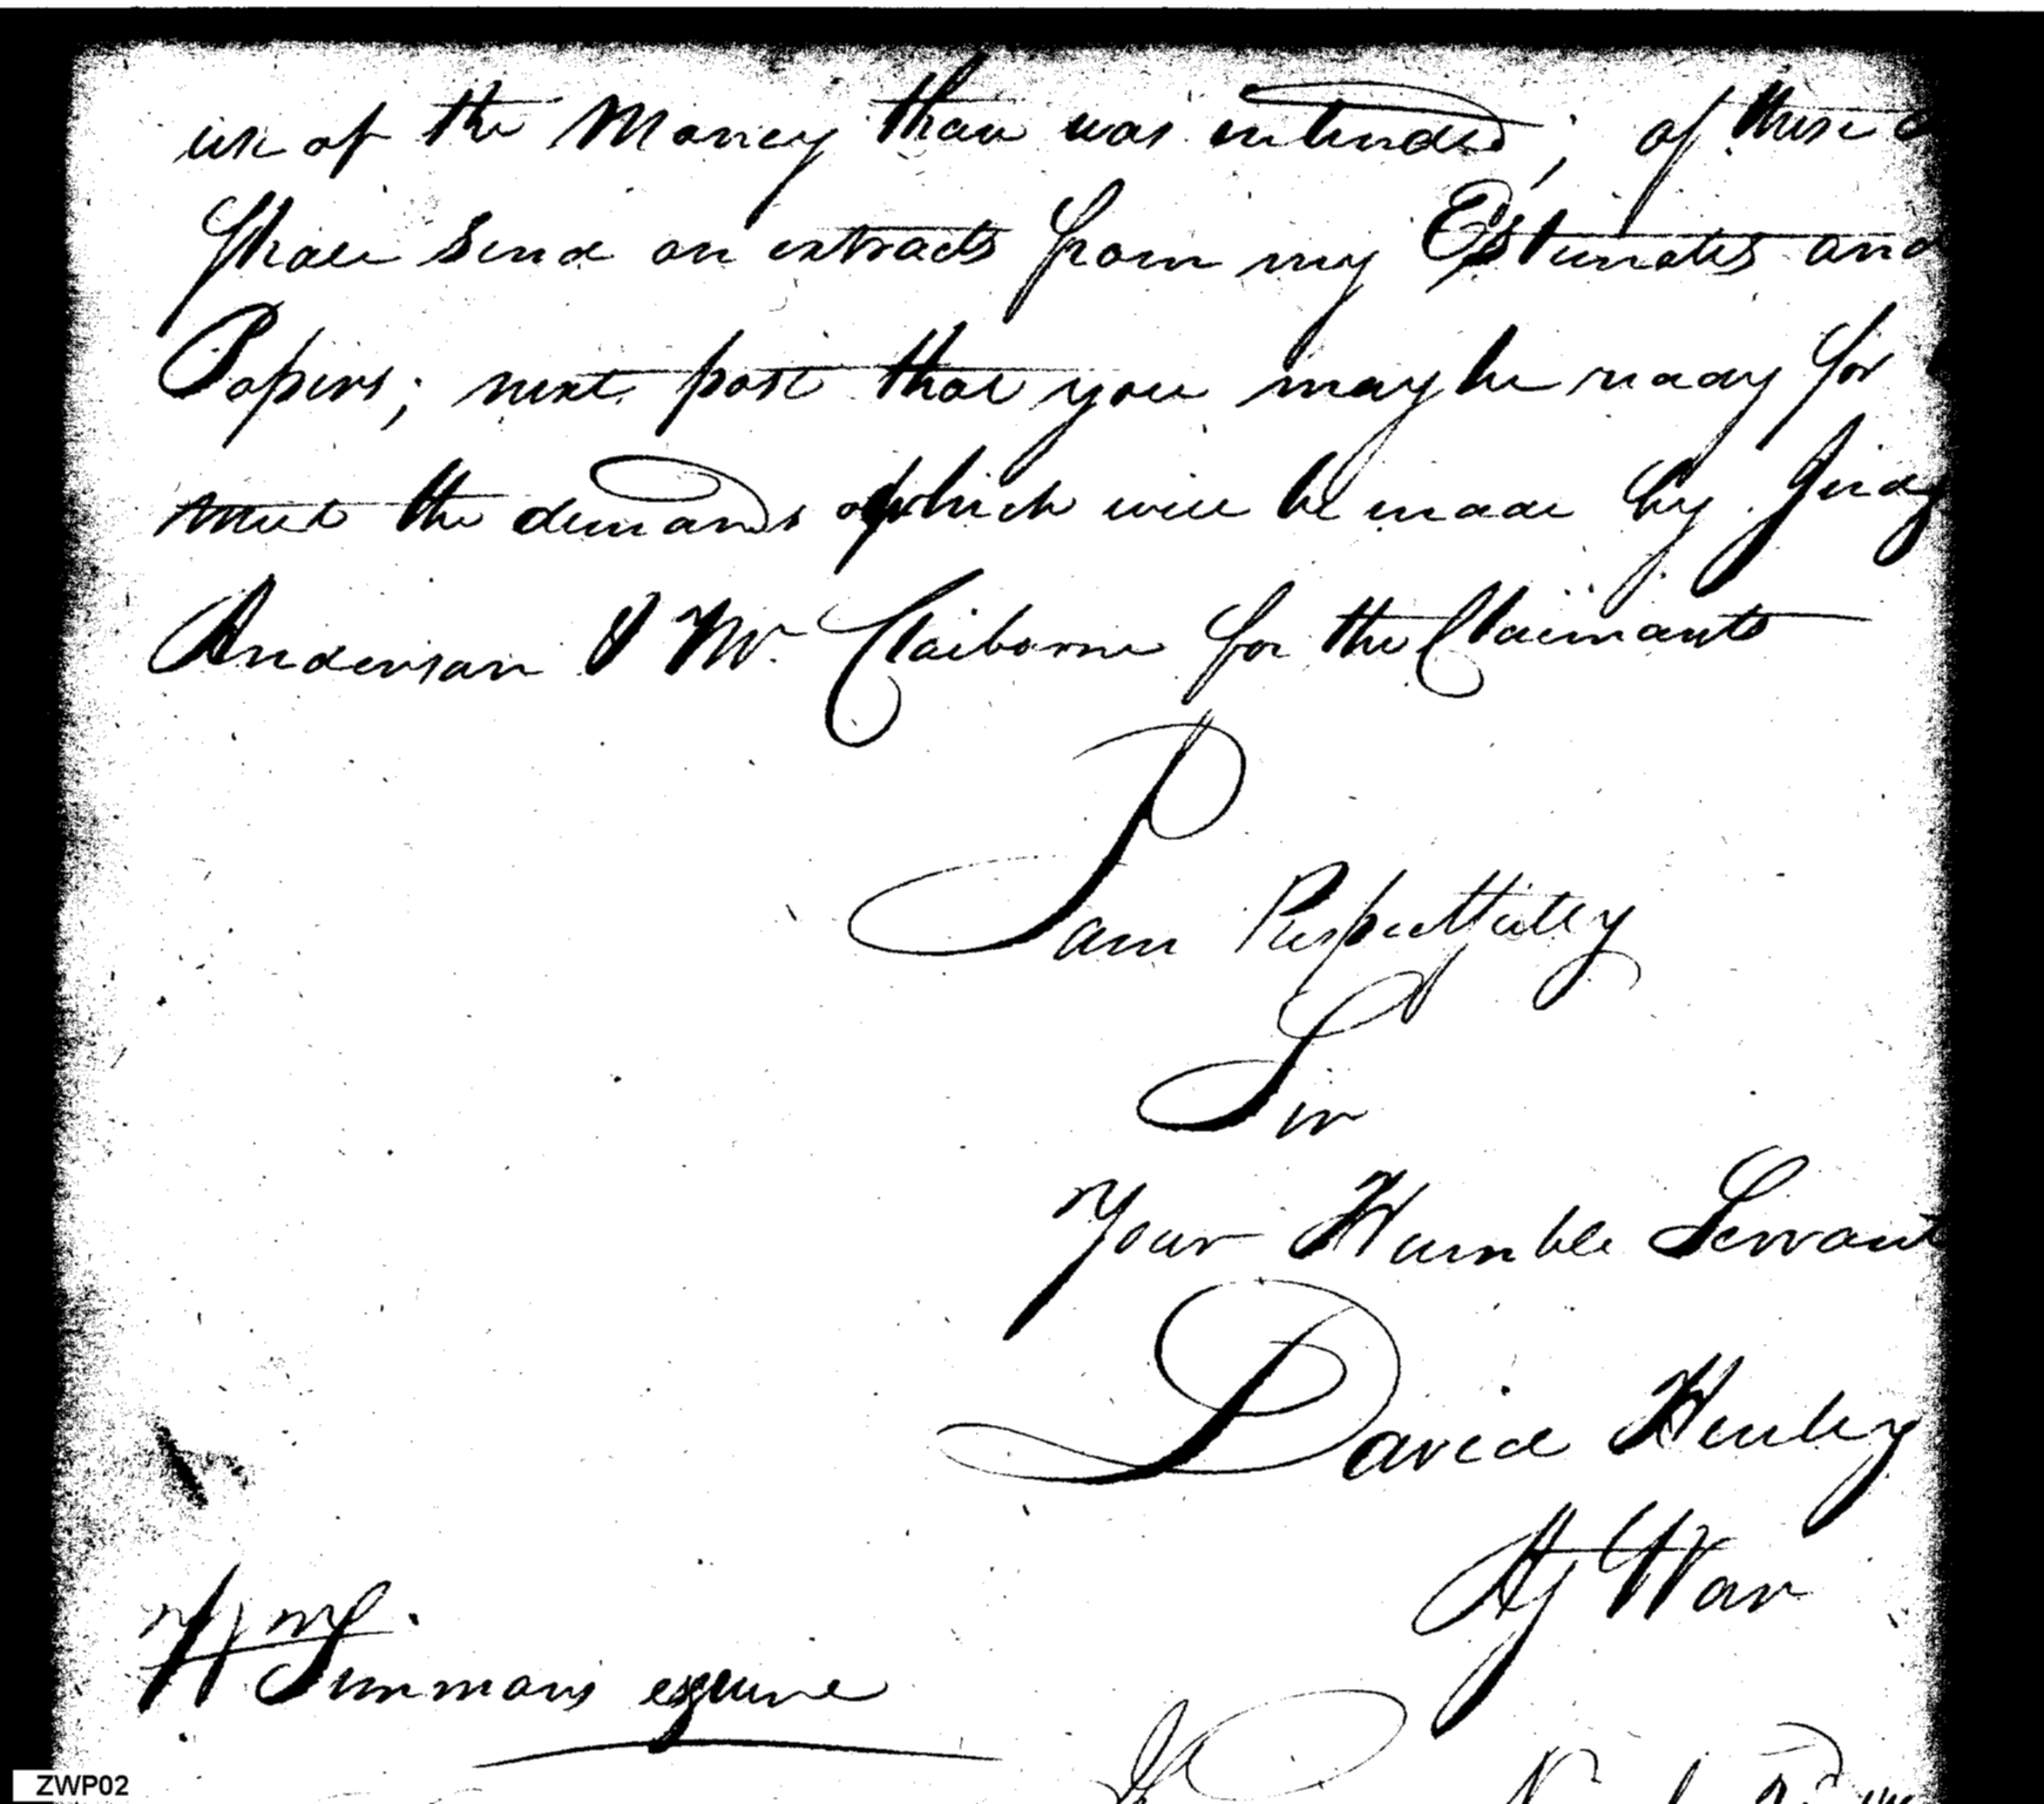 use of the Money than was intended; of these
shall send an extracts from my Estimates and
Papers; next post that you may be ready for
meet the demands which will be made by Judg
Anderson & Mr. Claiborne for the Claimants
I am Respectfully
Sir
Your Humble Servant
David Henley
Ag War
Wm
Simmons esquire
ZWP02